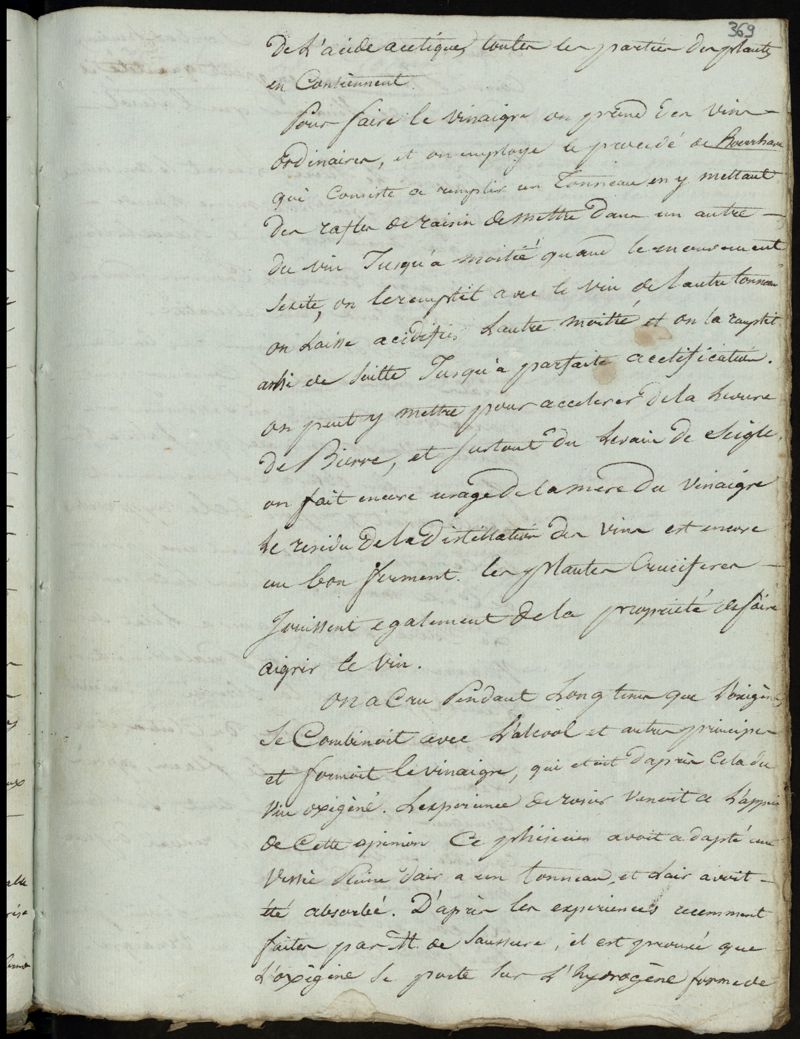 369
De L'acide acetique, toutes les parties des plantes
en Contiennent.
Pour faire le vinaigre on prend des vins
ordinaires, et on employe le procédé de Boerrhave
qui Consiste a remplir un Tonneau en y mettant
des rafles de raisin de mettre dans un autre
du vin Jusqu'a moitié quand le mouvement
Sexite, on le remplit avec le vin de l'autre tonneau
on Laisse acidifier Lautre moitié et on la remplit
ainsi de Suitte Jusqu'a parfaite acetification.
on peut y mettre pour accelerer de la Levure
de Bierre, et surtout du Levain de Seigle.
on fait encore usage de la mere du vinaigre
Le residu de la Distillation des vins est encore
un bon ferment. les plantes Cruciferes
Jouissent egalement de la propriété de faire
aigrir le vin.
On a Cru Pendant Long tems que L'oxigène
Se Combinoit avec L'alcool et autres principes
et formoit le vinaigre, qui etoit d'après Cela du
vin oxigèné. L'experience de rosier venoit a L'appui
de Cette opinion Ce phisicien avoit adapté une
Vessie Pleine d'air a un tonneau, et Lair avoit
été absorbé. D'après les experiences recemment
faites par M. de Saussure, il est prouvé que
L'oxigène Se porte sur L'hydrogène forme de